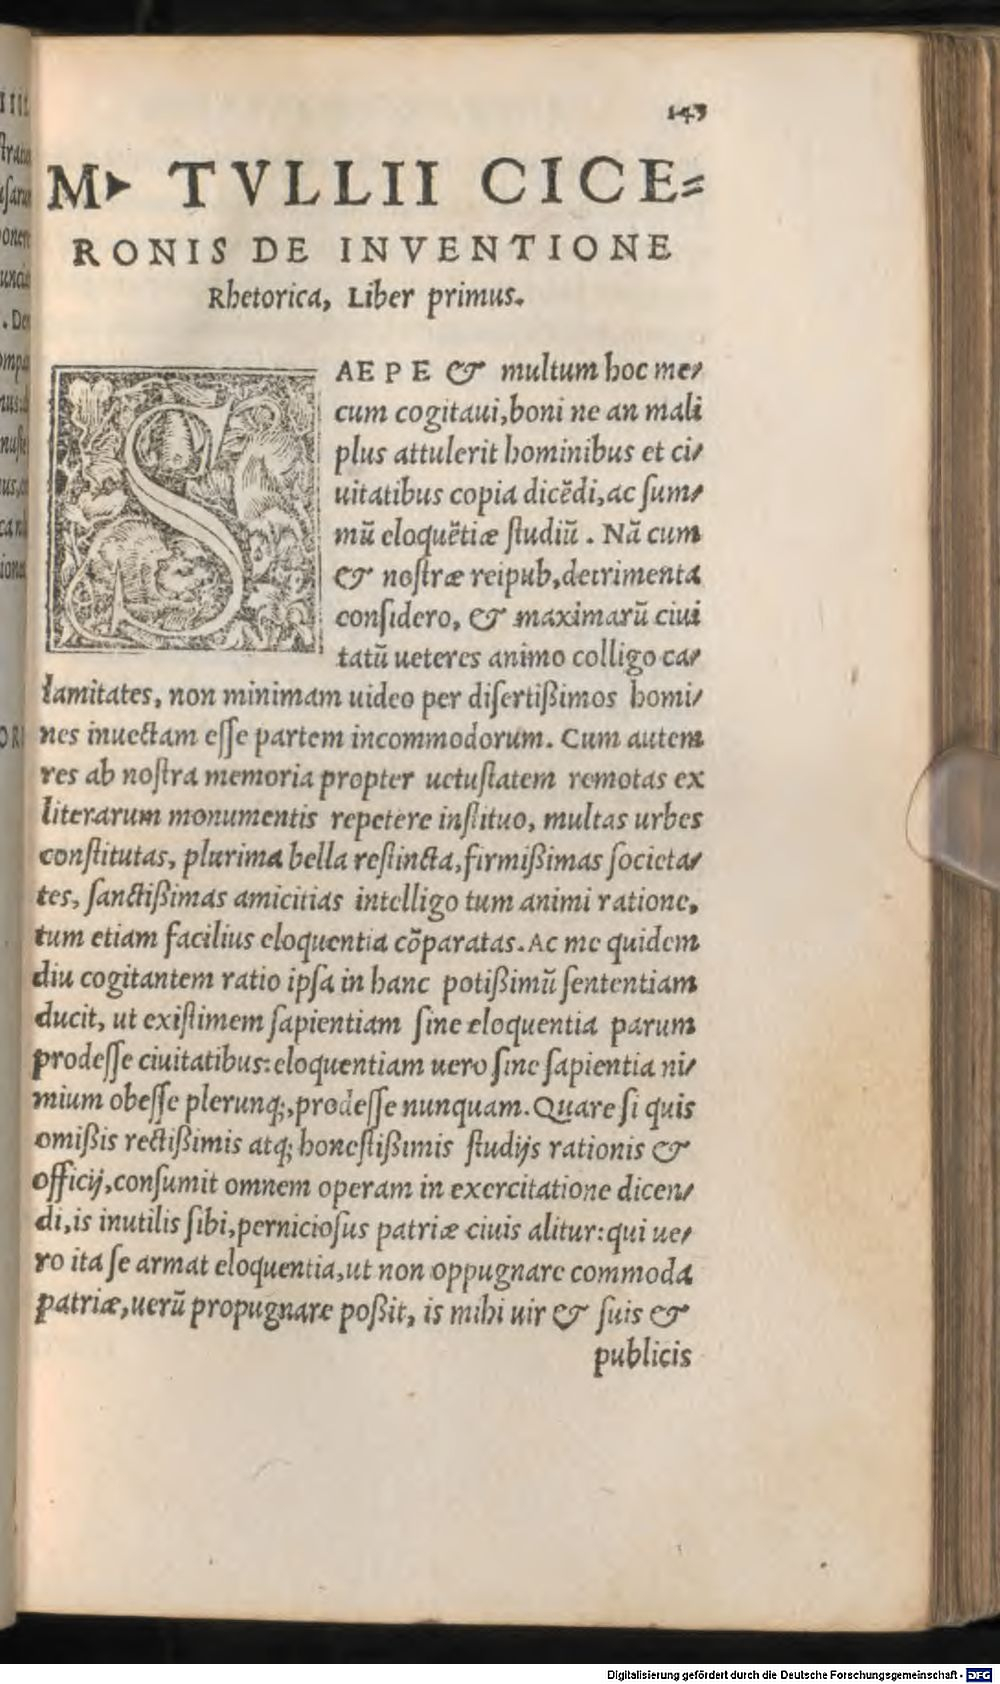 143
M▸ TVLLII CICE=
RONIS DE INVENTIONE
Rhetorica, Liber primus.
SAEPE & multum hoc me/
cum cogitaui, boni ne an mali
plus attulerit hominibus et ci/
uitatibus copia dicẽdi, ac sum/
mũ eloquẽtiæ studiũ. Nã cum
& nostræ reipub, detrimenta
considero, & maximarũ ciui
tatũ ueteres animo colligo ca/
lamitates, non minimam uideo per disertißimos homi/
nes inuectam esse partem incommodorum. Cum autem
res ab nostra memoria propter uetustatem remotas ex
literarum monumentis repetere instituo, multas urbes
constitutas, plurima bella restincta, firmißimas societa/
tes, sanctißimas amicitias intelligo tum animi ratione,
tum etiam facilius eloquentia cõparatas. Ac me quidem
diu cogitantem ratio ipsa in hanc potißimũ sententiam
ducit, ut existimem sapientiam sine eloquentia parum
prodesse ciuitatibus: eloquentiam uero sine sapientia ni/
mium obesse plerunq;, prodesse nunquam. Quare si quis
omißis rectißimis atq; honestißimis studijs rationis &
officij, consumit omnem operam in exercitatione dicen/
di, is inutilis sibi, perniciosus patriæ ciuis alitur: qui ue/
ro ita se armat eloquentia, ut non oppugnare commoda
patriæ, uerũ propugnare poßit, is mihi uir & suis &
publicis
Digitalisierung gefördert durch die Deutsche Forschungsgemeinschaft - DFG